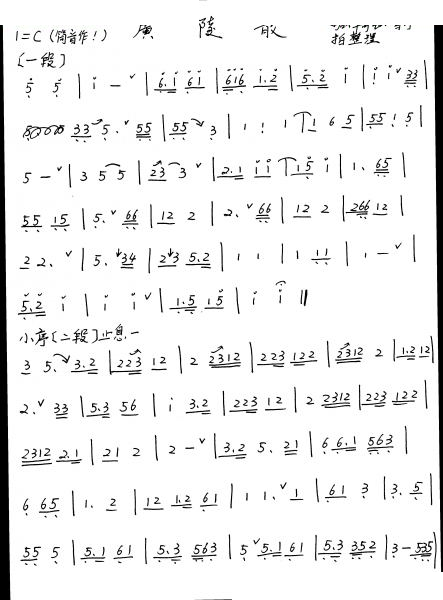 1=C (筒音作!) 廣陵散
拍整理
〔一段〕
5 5 | i - ˅ | 6.i 6i | 6i6 i.2 | 5.2 i | i i ˅ 33 |
33 5. ˅ 55 | 55 3 | 1 1 | 1 1 6 5 | 55 1 5 |
5 - ˅ | 3 5 5 | 23 3 ˅ | 2.1 i i | i 5 i | 1. 65 |
55 15 | 5. ˅ 66 | 12 2 | 2. ˅ 66 | 12 2 | 266 12 |
2 2. ˅ | 5. 34 | 23 5.2 | 1 1 | 1 11 | 1 - ˅ |
5.2 i | i i ˅ | 1.5 15 | i i ‖
小序〔二段〕止息一
3 5. 3.2 | 223 12 | 2 2312 | 223 122 | 2312 2 | 1.2 12 |
2. ˅ 33 | 5.3 56 | i 3.2 | 223 12 | 2 2312 | 223 122 |
2312 2.1 | 21 2 | 2 - ˅ | 3.2 5. 21 | 6 6.1 563 |
6 65 | 1. 2 | 12 1.2 61 | 1 1. ˅ 1 | 61 3 | 3. 5 |
55 5 | 5.1 61 | 5.3 563 | 5 ˅ 5.1 61 | 5.3 352 | 3 - 535 |